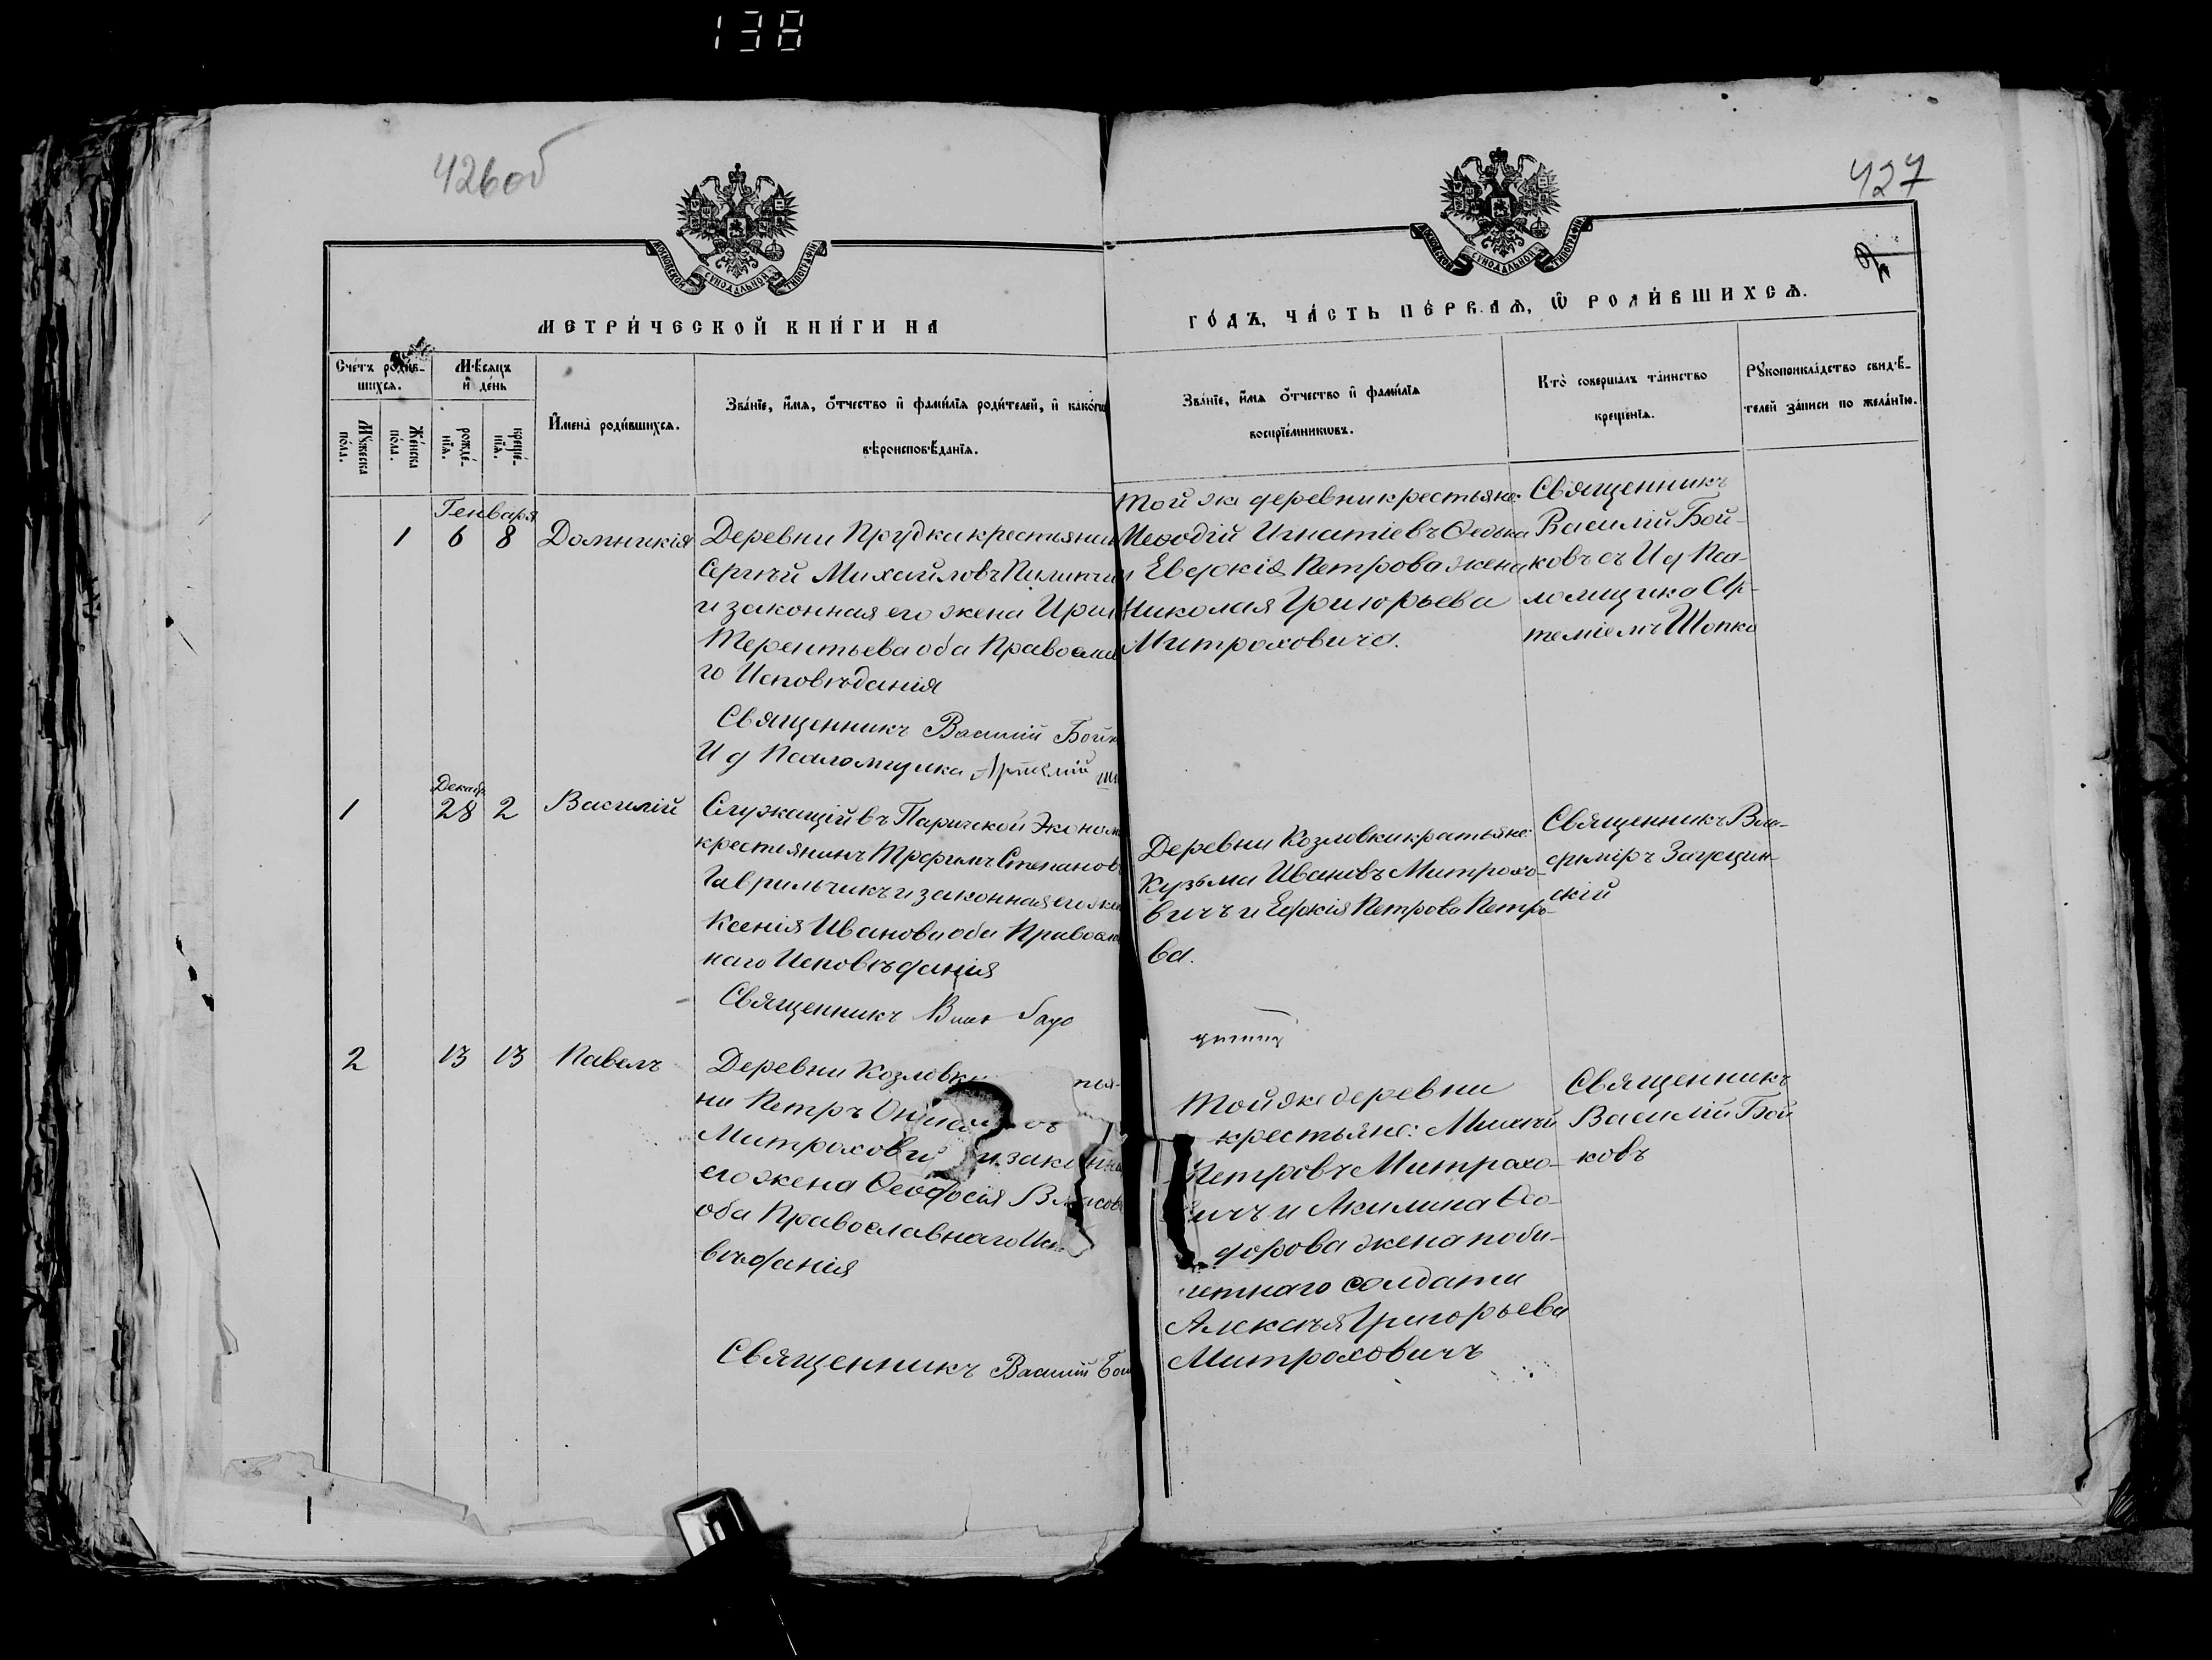 138
426об
427
МОСКОВСКОЙ СУНОДАЛЬНОЙ ТИПОГРАФІИ
МОСКОВСКОЙ СУНОДАЛЬНОЙ ТИПОГРАФІИ
МЕТРИ́ЧЕСКОЙ КНИ́ГИ НА
ГО́ДЪ, ЧА́СТЬ ПЕ́РВАѦ, Ѿ РОДИ́ВШИХСѦ.
Сче́тъ роди́в-
шихсѧ.
Мꙋ́жеска по́ла.
Же́нска по́ла.
Мѣ́сѧцъ и҆ де́нь
рожде́-нїѧ.
креще́-нїѧ.
И҆мена̀ роди́вшихсѧ.
Зва́нїе, и҆́мѧ, ѻ҆́тчество и҆ фами́лїѧ роди́телей, и҆ како́гѡ
вѣроисповѣ́данїѧ.
Зва́нїе, и҆́мѧ ѻ҆́тчество и҆ фами́лїѧ
воспрїе́мникѡвъ.
Кто̀ соверша́лъ та́инство
креще́нїѧ.
Рꙋкоприкла́дство свидѣ́-
телей за́писи по жела́нїю.
Генваря
1 6 8 Домникія
Деревни Прудка крестьянин
Сергѣй Михайловъ
и законная его жена Ири
Терентьева оба Правосла
го Исповѣданія
Священникъ Василій Бойк
И д Псаломщика Артемій
Той же деревни крестьяне:
Меѳодій Игнатіевъ
и Евдокія Петрова жена
Николая Григорьева
Митроховича.
Священникъ
Василій Бой-
ковъ съ И д Пса-
ломщика Ар-
теміемъ Шопко
Декабр.
1 28 2 Василій
Служащій въ Паричской Эконом
крестьянинъ Трофимъ Степановъ
Гаврильчикъ и законная его жен
Ксенія Иванова оба Правосла
наго Исповѣданія
Священникъ
Деревни Козловки крестьяне:
Кузьма Ивановъ Митрохо-
вичъ и Евдокія Петрова Петро-
ва.
Священникъ Вла-
диміръ Загусцин-
скій
2 13 13 Павелъ
Деревни Козловки
не Петръ
Митрохови и законна
его жена Ѳеодосія Власов
оба Православнаго Ис
вѣданія
Священникъ Василій Бой
Той же деревни
крестьяне: Михей
Петровъ Митрохо-
вичъ и Акилина Ѳео-
дорова жена поби-
летнаго солдата
Алексѣя Григорьева
Митроховичъ
Священникъ
Василій Бой
ковъ